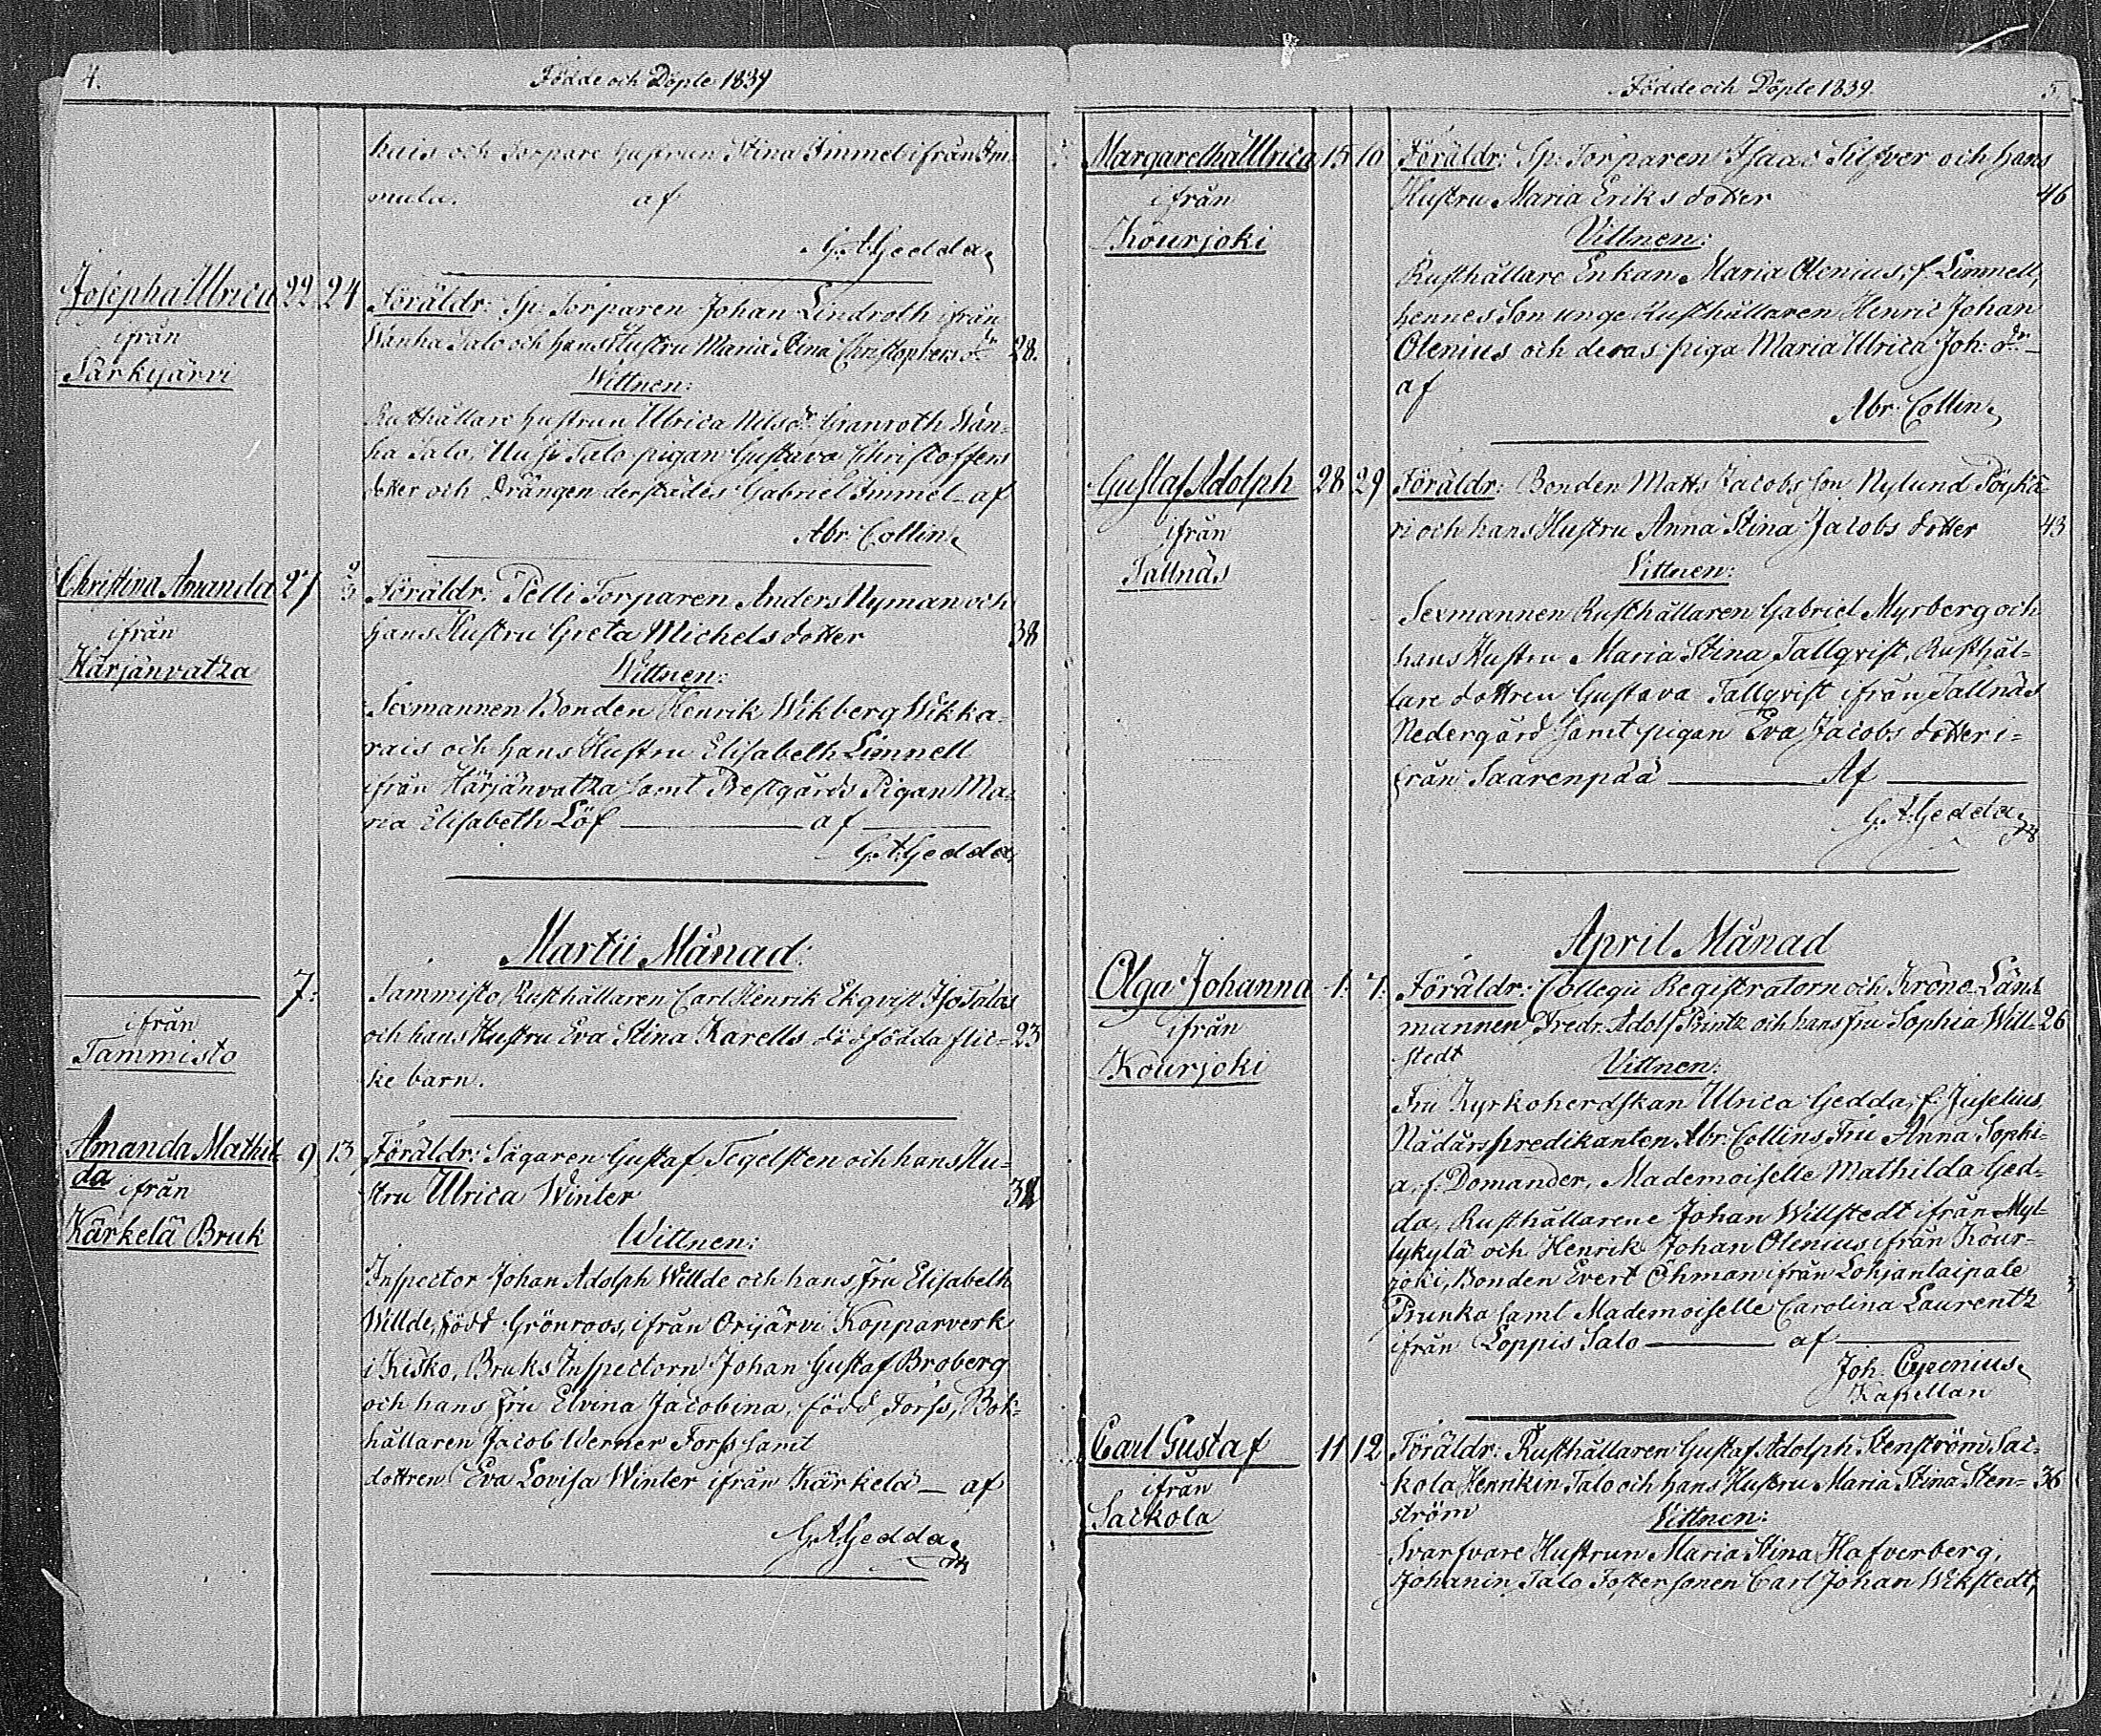 4.
Födde och Döpte 1839
hais och Torpare hustrun Stina Immel ifrån Im-
mula. af
G. A. Gedda.
Josepha Ulrica 22. 24 Föräldr: Sp: Torparen Johan Lindroth ifrån
ifrån
Wanha Talo och hans Hustru Maria Stina Christophers dr 28.
Särkijärvi
Wittnen:
Rusthållare hustrun Ulrica Nilsdr Granroth Wan-
ha Talo, Uusi Talo pigan Gustava Christoffers
dotter och Drängen derstädes Gabriel Immel - af
Abr. Collin.
Christina Amanda 27 3 Föräldr: Pelli Torparen Anders Nyman och
ifrån
hans Hustru Greta Michels dotter 38
Härjänvatza
Wittnen:
Sexmannen Bonden Henrik Wikberg Wikka-
rais och hans Hustru Elisabeth Limnell
ifrån Härjänvatza samt Prestgårds Pigan Ma-
ria Elisabeth Löf af
G. A. Gedda.
Martii Månad:
7. Tammisto, Rusthållaren Carl Henrik Ekqvist Iso Talos
ifrån
och hans Hustru Eva Stina Karells dödfödda flic- 23
Tammisto
ke barn.
Amanda Mathil- 9. 13 Föräldr: Sågaren Gustaf Tegelsten och hans Hu-
da ifrån
stru Ulrica Winter
Kärkelä Bruk
Wittnen:
Inspector Johan Adolph Willde och hans Fru Elisabeth
Willde, född Grönroos, ifrån Orijärvi Kopparverk
i Kisko, Bruks Inspectorn Johan Gustaf Broberg
och hans Fru Elvina Jacobina, född Forss, Bok-
hållaren Jacob Werner Forss samt
dottren Eva Lovisa Winter ifrån Kärkelä - af
G. A. Gedda.
Födde och Döpte 1839.
5.
Margaretha Ulrica 15 16 Föräldr: Sp: Torparen Isaac Silfver och hans
ifrån
Hustru Maria Eriks dotter 46
Kourjoki
Vittnen:
Rusthållare Enkan Maria Olenius, f. Limnell,
hennes Son unge Rusthållaren Henric Johan
Olenius och deras piga Maria Ulrica Joh: dr -
af
Abr. Collin.
Gustaf Adolph 28 29 Föräldr: Bonden Matts Jacobs son Nylund Pöyhä-
ifrån
ri och hans Hustru Anna Stina Jacobs dotter 43
Tallnäs
Vittnen:
Sexmannen Rusthållaren Gabriel Myrberg och
hans Hustru Maria Stina Tallqvist, Rusthål-
lare dottren Gustava Tallqvist ifrån Tallnäs
Nedergård samt pigan Eva Jacobs dotter i-
från Saarenpää Af
G. A. Gedda.
April Månad
Olga Johanna 1. 7. Föräldr: Collegii Registratorn och Krono-Läns
ifrån
mannen Fredr. Adolf Printz och hans fru Sophia Will- 26
Kourjoki
stedt
Vittnen:
Fru Kyrkoherdskan Ulrica Gedda, f. Juselius,
Nådårspredikanten Abr. Collins Fru Anna Sophi-
a, f. Domander, Mademoiselle Mathilda Ged-
da, Rusthållarene Johan Willstedt ifrån Myl-
lykylä och Henrik Johan Olenius ifrån Kour-
joki, Bonden Evert Öhman ifrån Lohjantaipale
Prunka samt Mademoiselle Carolina Laurentz
ifrån Loppis Salo af
Joh. Cyrenius.
Kapellan
Carl Gustaf 11 12 Föräldr: Rusthållaren Gustaf Adolph Stenström, Sai-
ifrån
kola Hennkin Talo och hans Hustru Maria Stina Sten- 36
Saikola
ström
Vittnen:
Svarfvare Hustrun Maria Stina Hafverberg,
Johanin Talo Fostersonen Carl Johan Wikstedt,